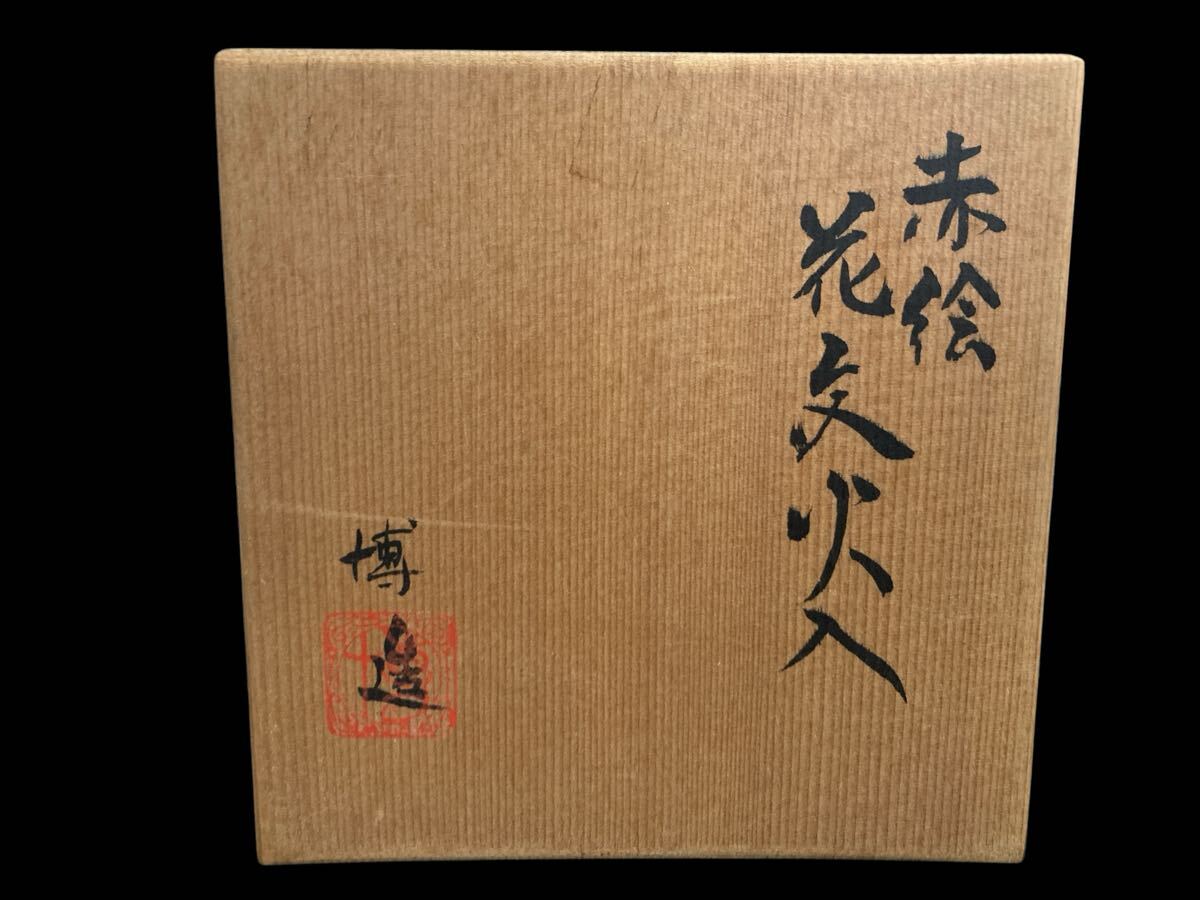 赤絵
花文火入
博造